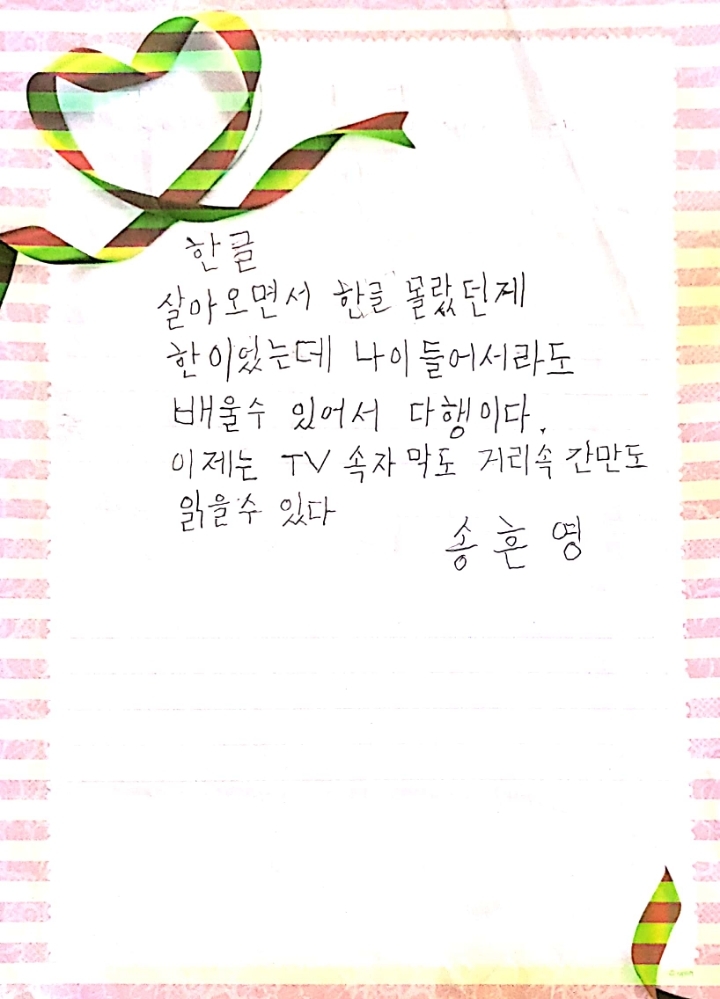 한글
살아오면서 한글 몰랐던게
한이었는데 나이들어서라도
배울수 있어서 다행이다.
이제는 TV 속자막도 거리속 간만도
읽을수 있다
송흔영